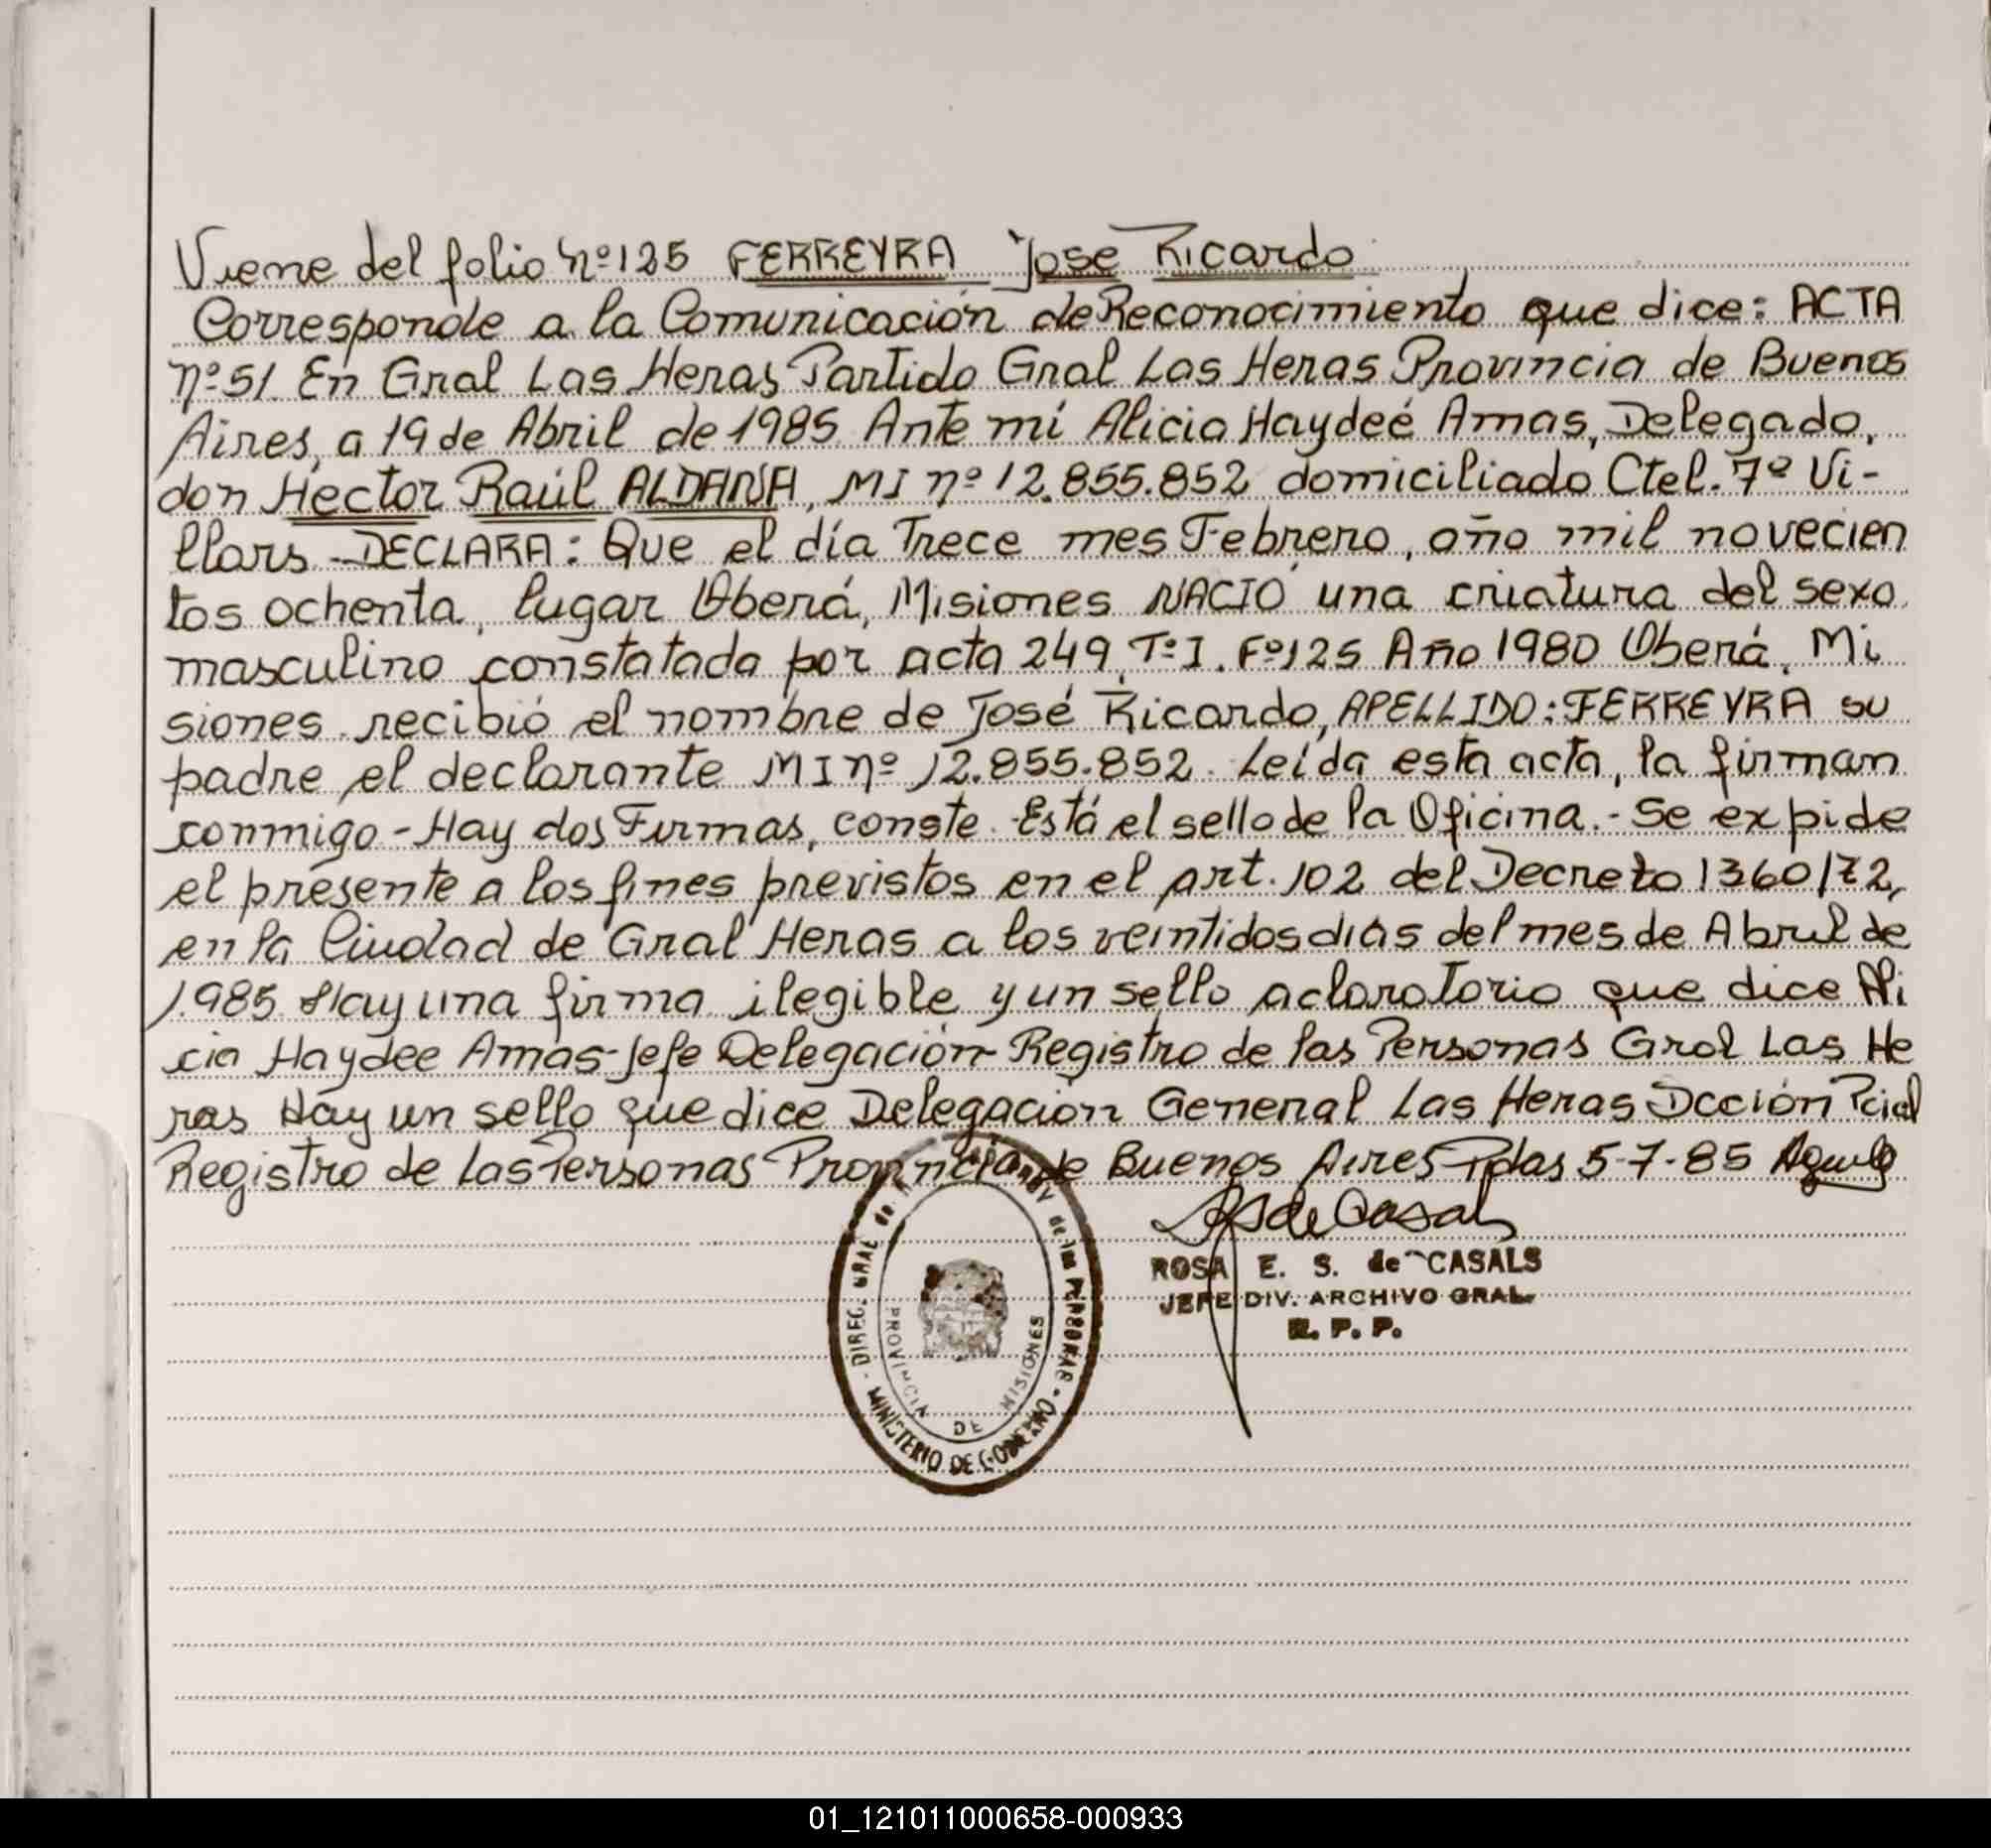 Viene del folio nº 125 FERREYRA José Ricardo
Corresponde a la Comunicación de Reconocimiento que dice: ACTA
nº 51 En Gral Las Heras Partido Gral Las Heras Provincia de Buenos
Aires, a 19 de Abril de 1985 Ante mí Alicia Haydeé Amas, Delegado,
don Hector Raúl ALDANA, MI nº 12.855.852 domiciliado Ctel. 7º Vi-
llars - DECLARA: Que el día Trece mes Febrero, año mil novecien
tos ochenta, lugar Oberá, Misiones NACIÓ una criatura del sexo
masculino constatada por acta 249, Tº I. Fº 125 Año 1980 Oberá, Mi
siones recibió el nombre de José Ricardo, APELLIDO: FERREYRA su
padre el declarante MI nº 12.855.852. Leída esta acta, la firman
conmigo - Hay dos Firmas, conste. Está el sello de la Oficina.- Se expide
el presente a los fines previstos en el art. 102 del Decreto 1360/72,
en la Ciudad de Gral Heras a los veintidos días del mes de Abril de
1.985 Hay una firma ilegible y un sello aclaratorio que dice Ali
cia Haydee Amas - Jefe Delegación - Registro de las Personas Gral Las He
ras Hay un sello que dice Delegación General Las Heras Dcción Pcial
Registro de las Personas Provincia de Buenos Aires Pdas 5-7-85
ROSA E. S. de CASALS
JEFE DIV. ARCHIVO GRAL.
R. P. P.
DIREC. GRAL de de las PERSONAS - MINISTERIO DE GOBIERNO -
PROVINCIA DE MISIONES
01_121011000658-000933